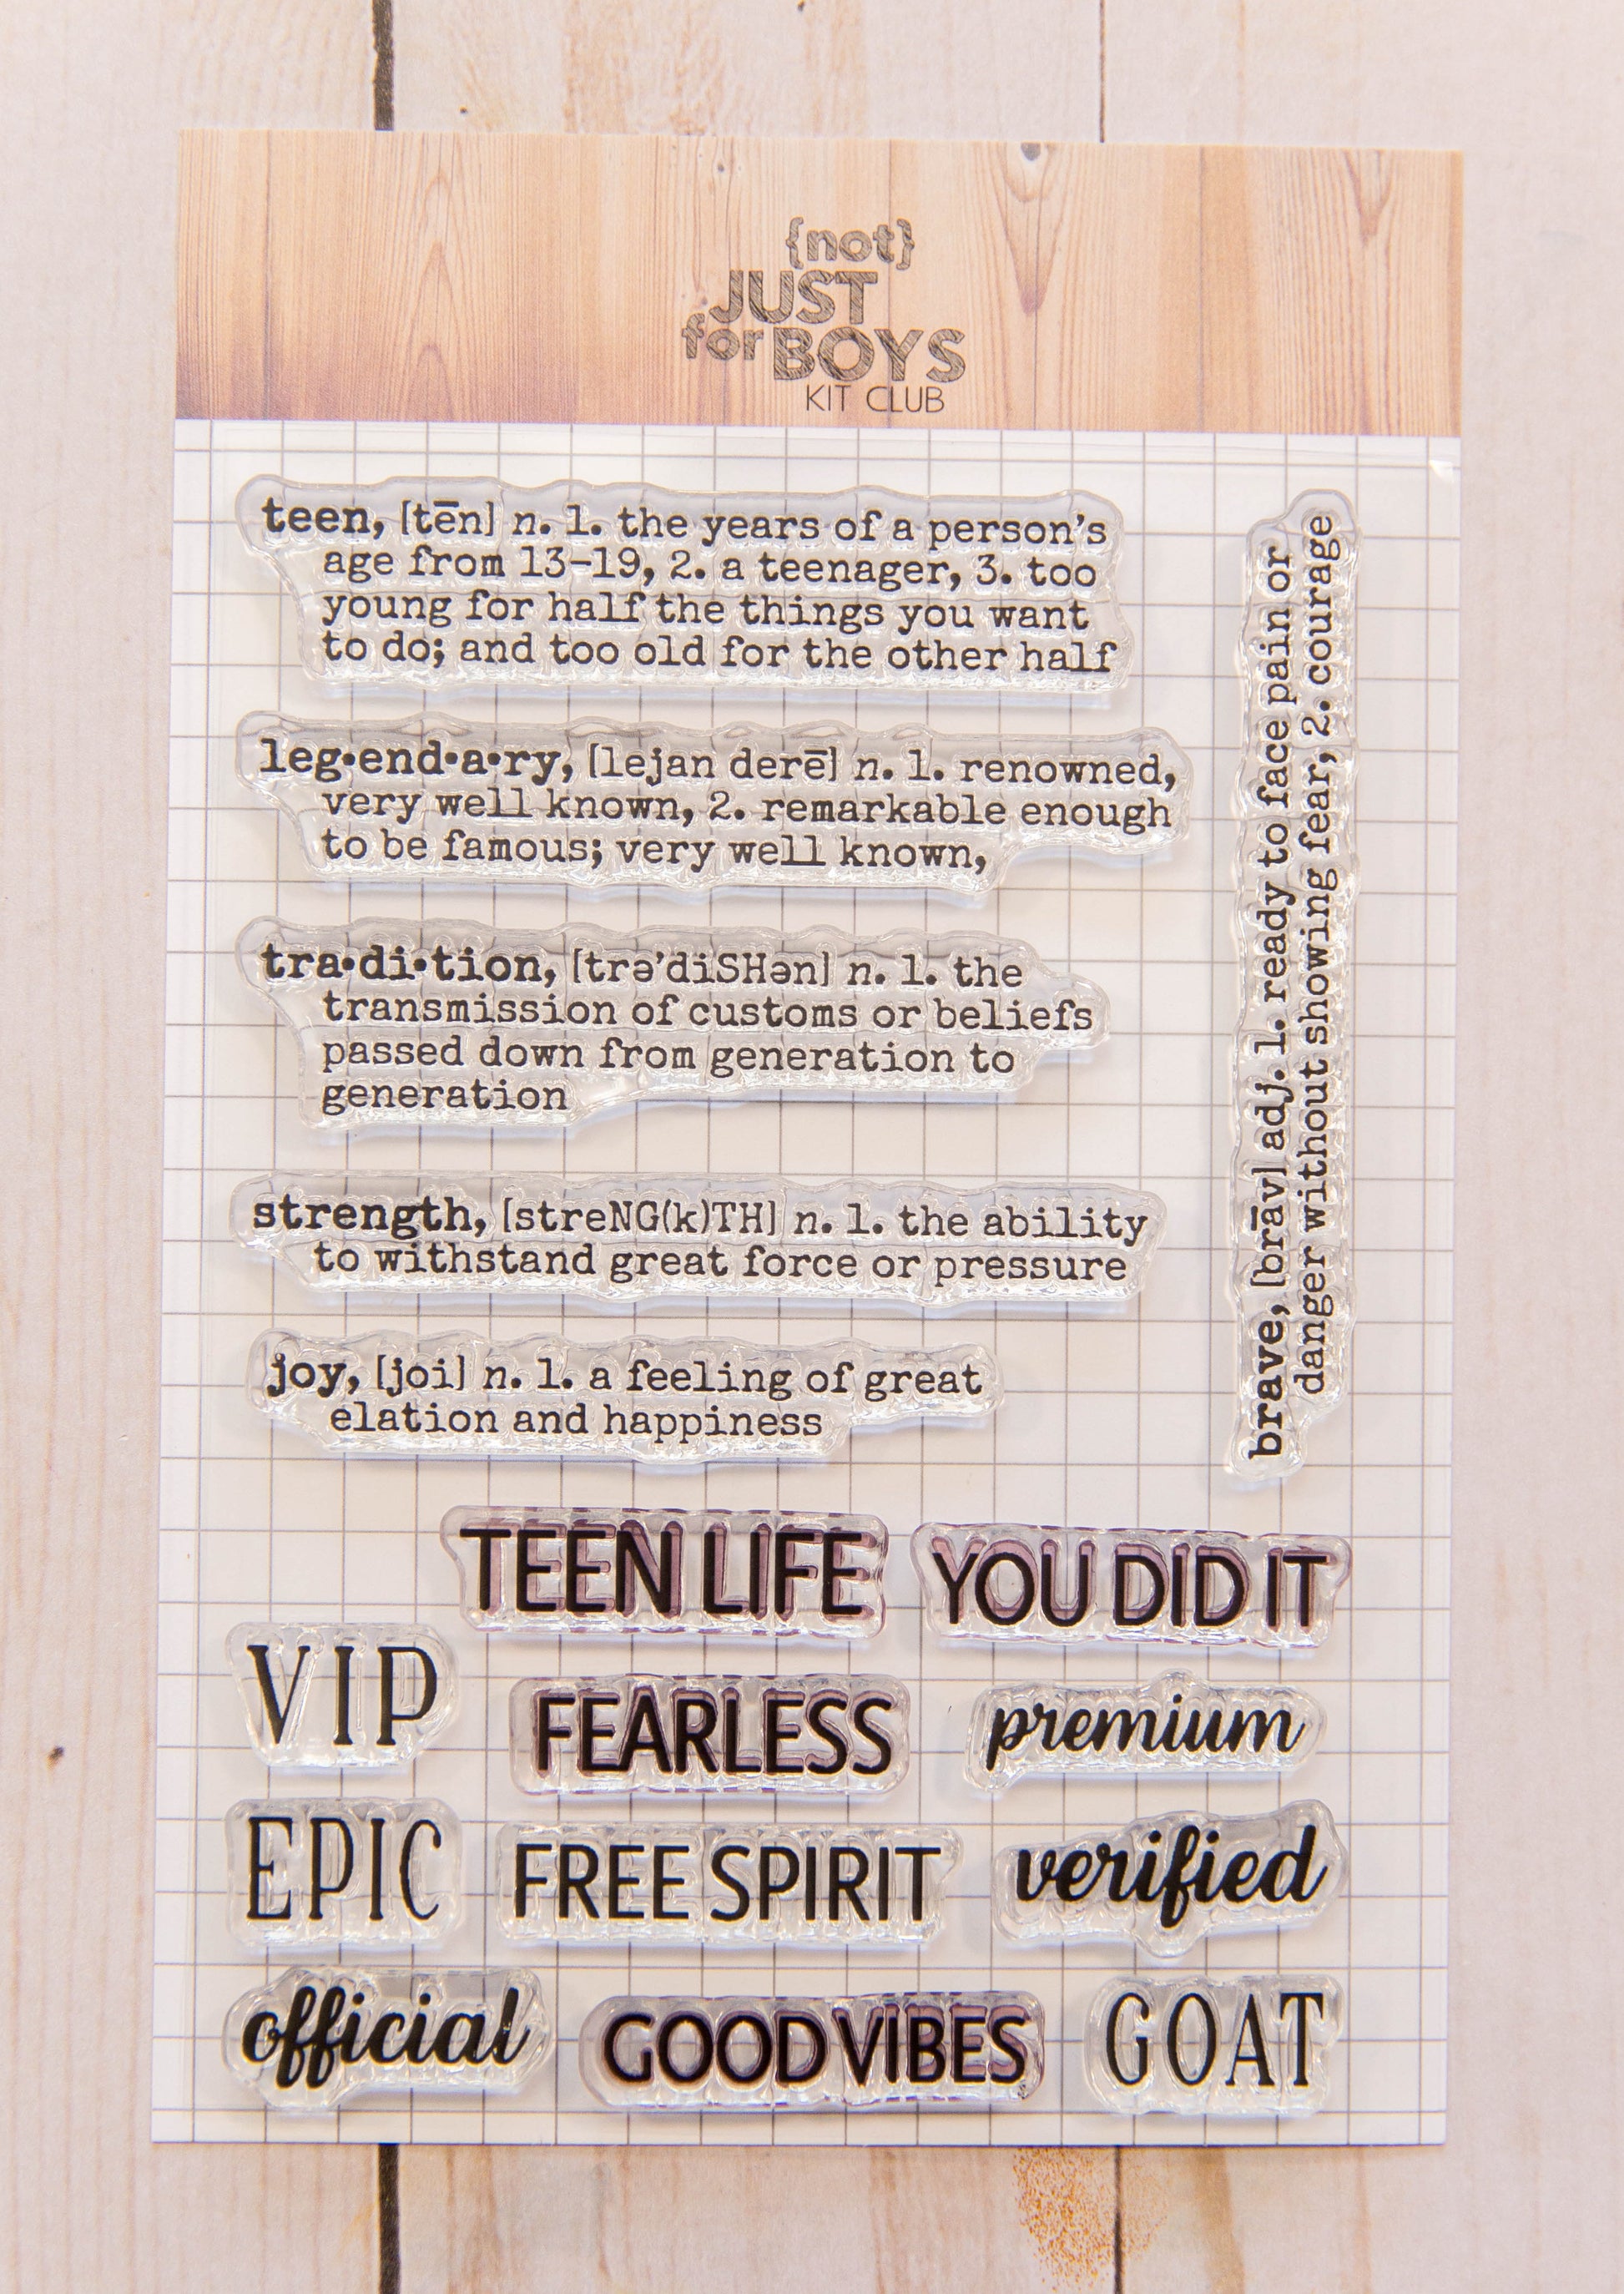 {not}
JUST
for BOYS
KIT CLUB
teen, [tēn] n. 1. the years of a person's
age from 13-19, 2. a teenager, 3. too
young for half the things you want
to do; and too old for the other half
leg•end•a•ry, [lejan derē] n. 1. renowned,
very well known, 2. remarkable enough
to be famous; very well known,
tra•di•tion, [trə'diSHən] n. 1. the
transmission of customs or beliefs
passed down from generation to
generation
strength, [streNG(k)TH] n. 1. the ability
to withstand great force or pressure
joy, [joi] n. 1. a feeling of great
elation and happiness
brave, [brāv] adj. 1. ready to face pain or
danger without showing fear, 2. courage
TEEN LIFE
YOU DID IT
VIP
FEARLESS
premium
EPIC
FREE SPIRIT
verified
official
GOOD VIBES
GOAT